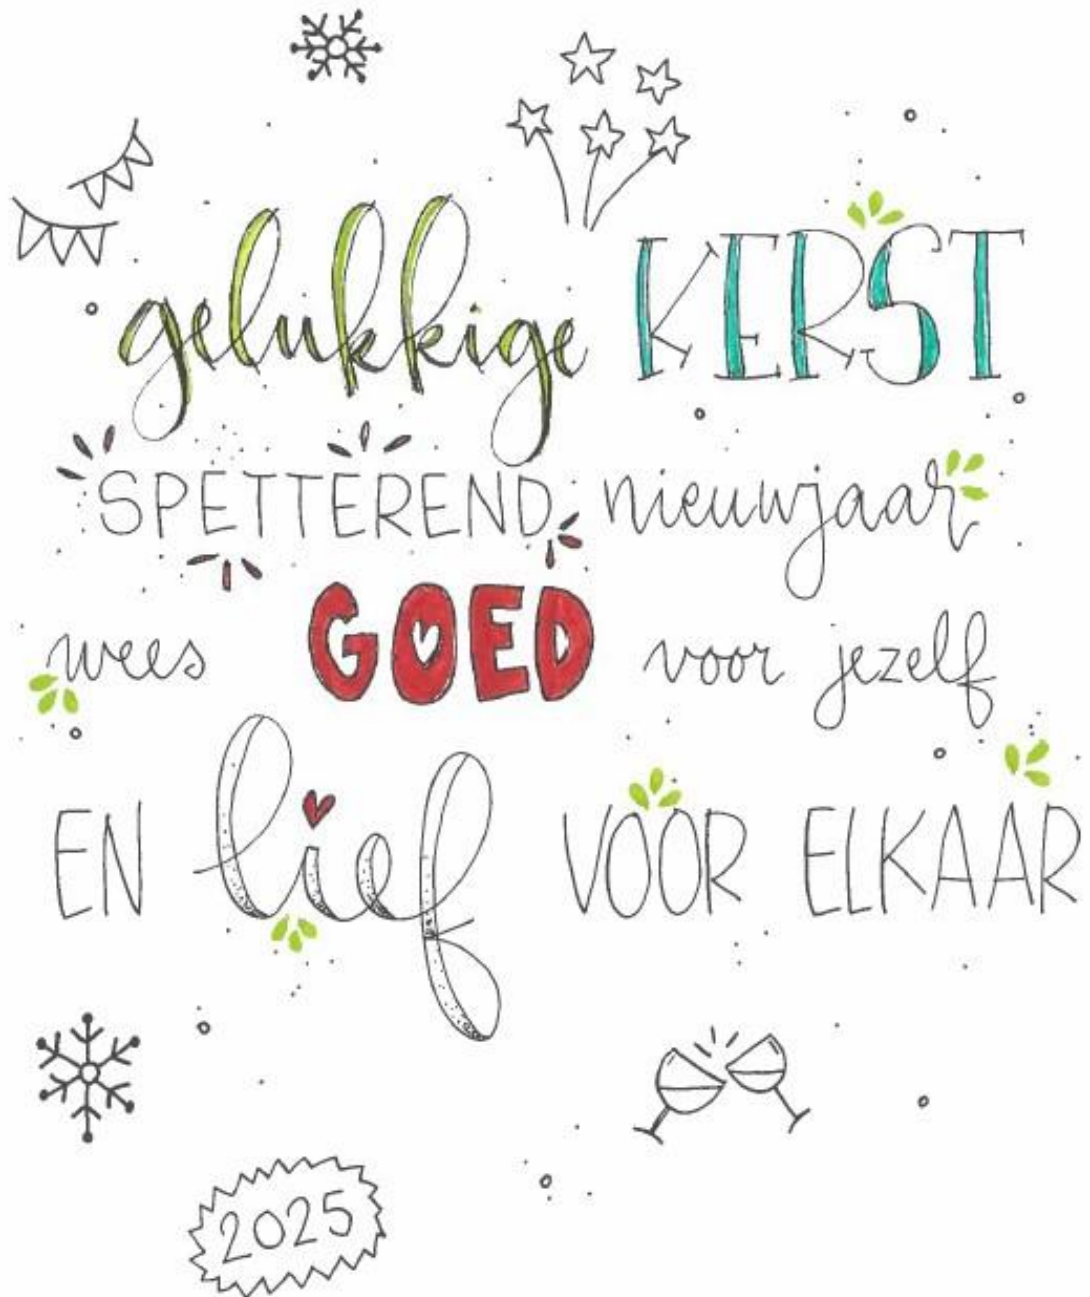 gelukkige KERST
SPETTEREND nieuwjaar
wees GOED voor jezelf
EN lief VOOR ELKAAR
2025